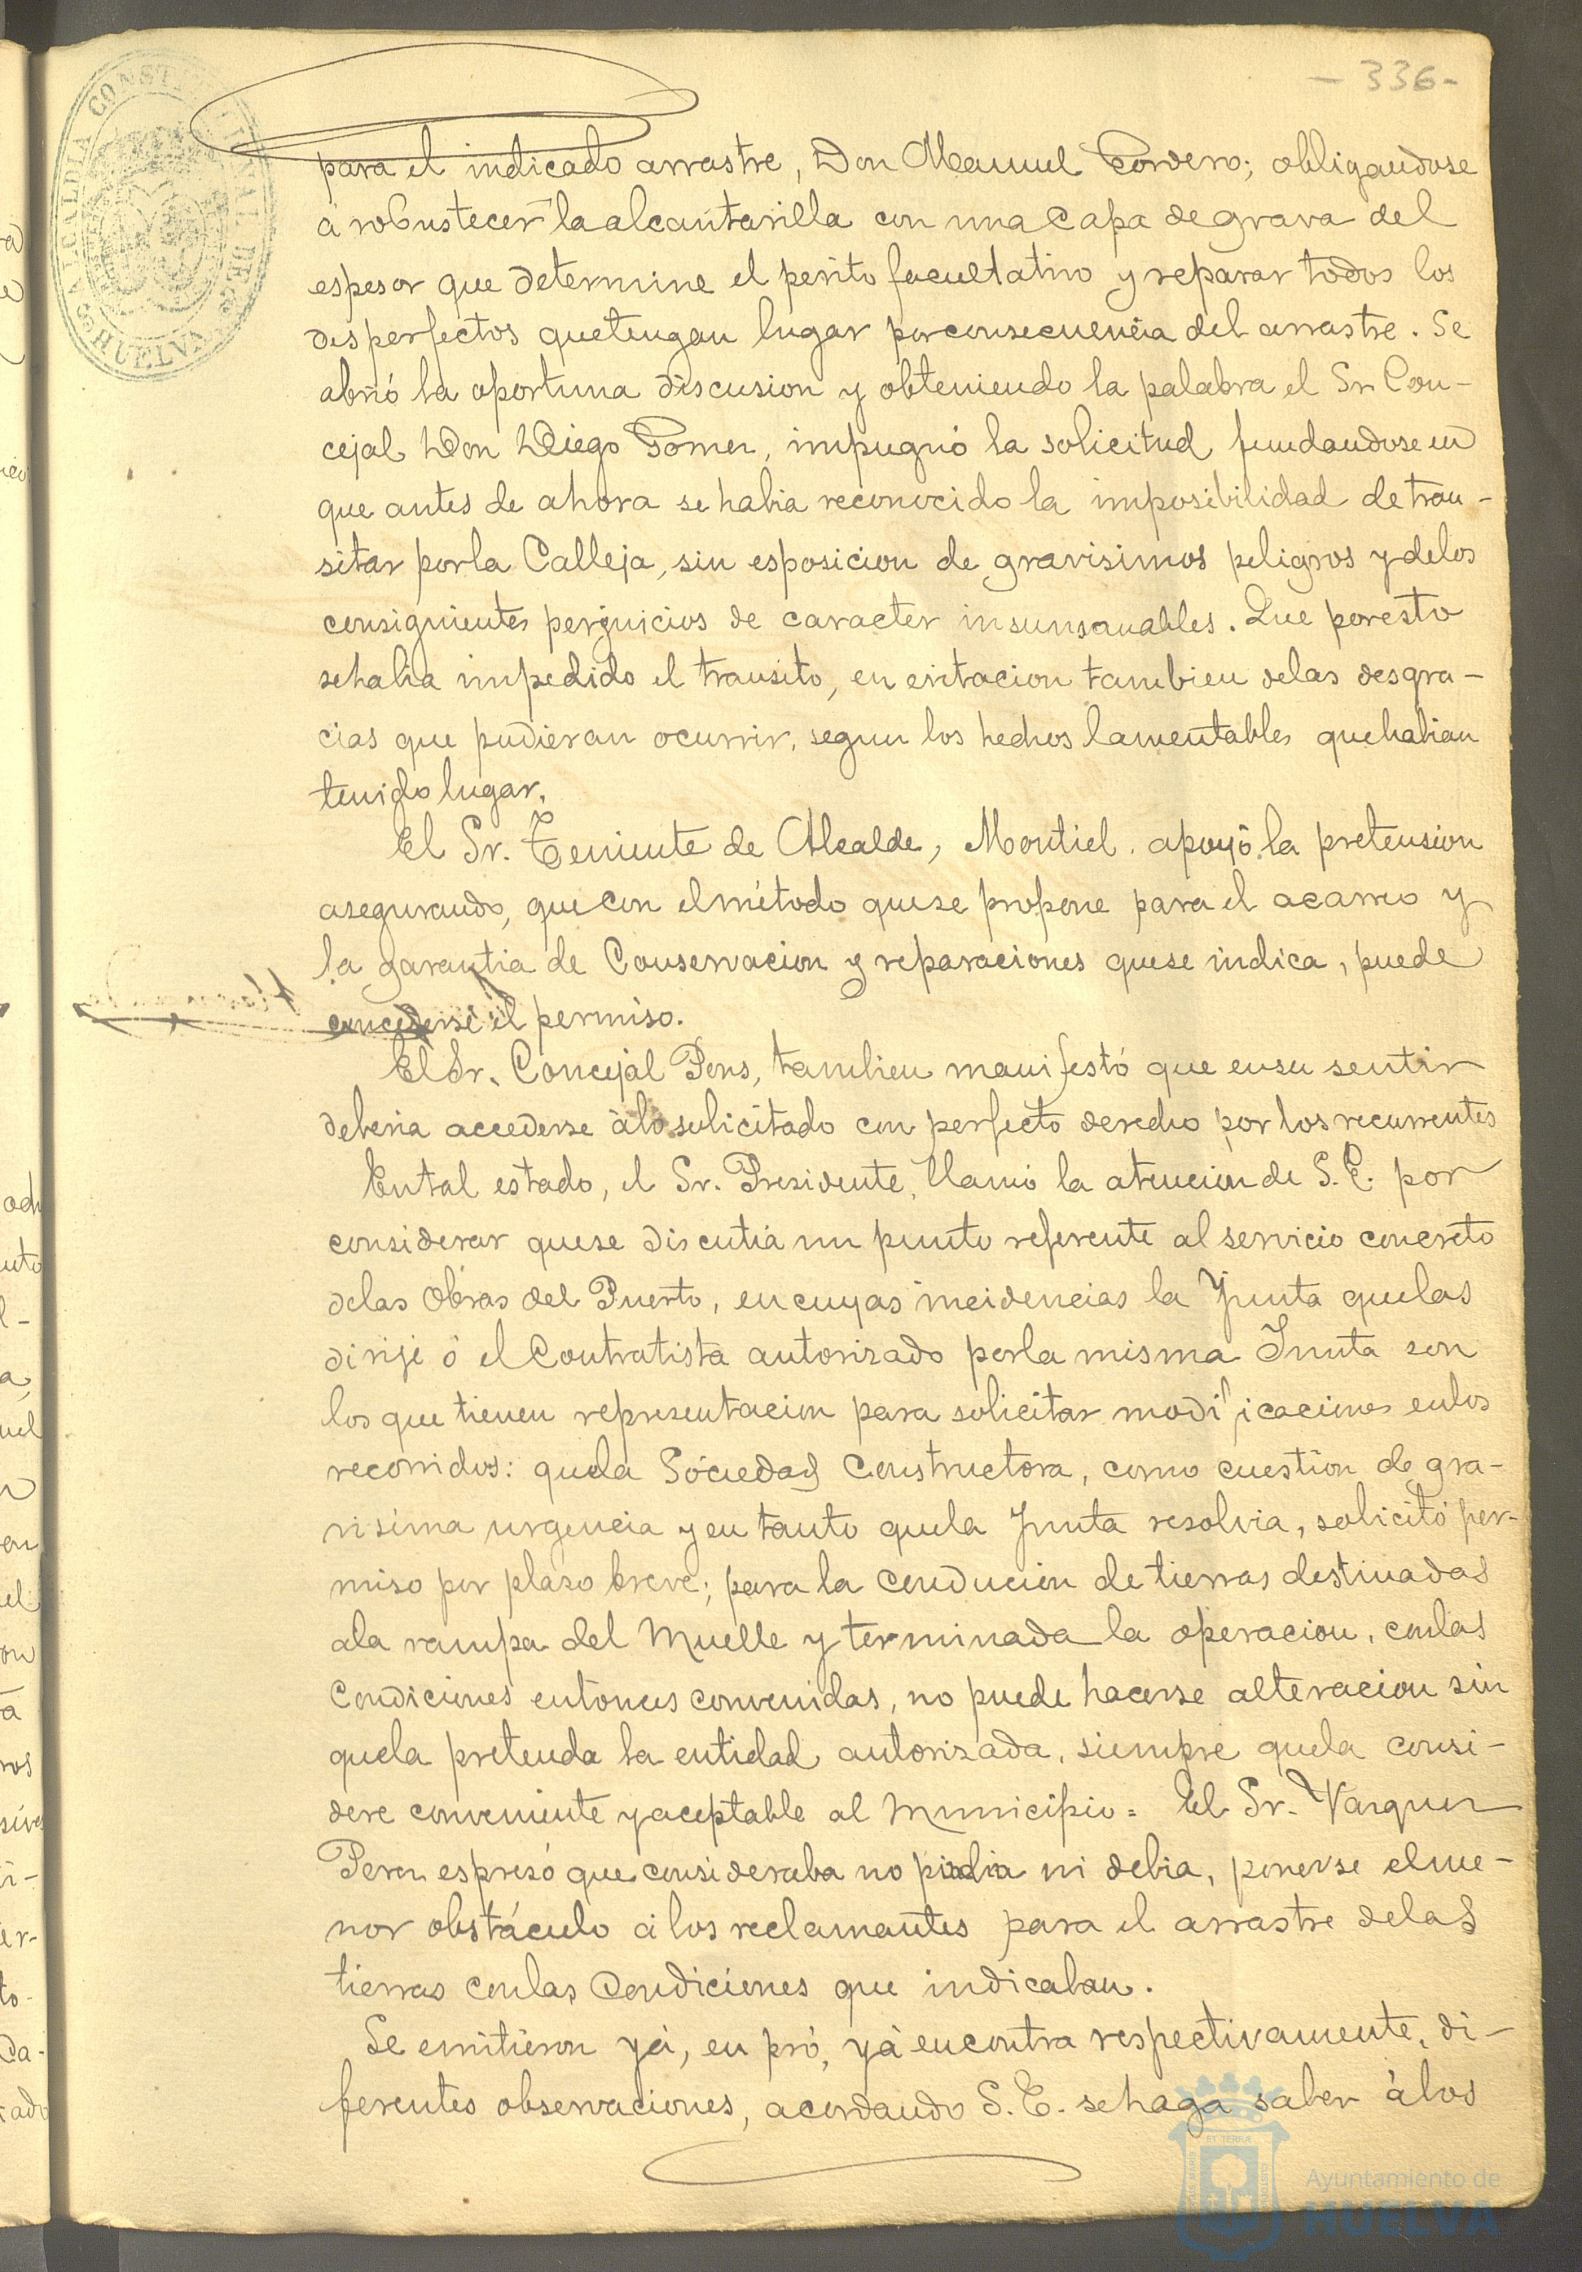 - 336 -
ALCALDIA CONSTITUCIONAL DE HUELVA
para el indicado arrastre, Don Manuel Cordero; obligandose
á robustecer la alcantarilla con una capa de grava del
espesor que determine el perito facultativo y reparar todos los
desperfectos que tengan lugar por consecuencia del arrastre. Se
abrió la oportuna discusion y obteniendo la palabra el Sr Con-
cejal Don Diego Gomez, impugnó la solicitud fundandose en
que antes de ahora se habia reconocido la imposibilidad de tran-
sitar por la Calleja, sin esposicion de gravisimos peligros y de los
consiguientes perjuicios de caracter insunsanables. Que por esto
se habia impedido el transito, en evitacion tambien de las desgra-
cias que pudieran ocurrir, segun los hechos lamentables que habian
tenido lugar.
El Sr. Teniente de Alcalde, Montiel. apoyó la pretension
asegurando, que con el método que se propone para el acarreo y
la garantia de Conservacion y reparaciones que se indica, puede
concederse el permiso.
El Sr. Concejal Pons, tambien manifestó que en su sentir
deberia accederse á lo solicitado con perfecto derecho por los recurrentes
En tal estado, el Sr. Presidente, llamó la atencion de S. E. por
considerar que se discutia un punto referente al servicio concreto
de las Obras del Puerto, en cuyas incidencias la Junta que las
dirije ó el Contratista autorizado por la misma Junta son
los que tienen representacion para solicitar modificaciones en los
recorridos: que la Sociedad Constructora, como cuestion de gra-
visima urgencia y en tanto que la Junta resolvia, solicitó per-
miso por plazo breve; para la conducion de tierras destinadas
a la rampa del Muelle y terminada la operacion, con las
Condiciones entonces convenidas, no puede hacerse alteracion sin
que la pretenda la entidad autorizada, siempre que la consi-
dere conveniente y aceptable al Municipio = El Sr. Vazquez
Perez espresó que consideraba no podia ni debia, ponerse el me-
nor obstáculo á los reclamantes para el arrastre de las
tierras con las Condiciones que indicaban.
Se emitieron yá, en pró, yá en contra respectivamente, di-
ferentes observaciones, acordando S. E. se haga saber á los
Ayuntamiento de
HUELVA